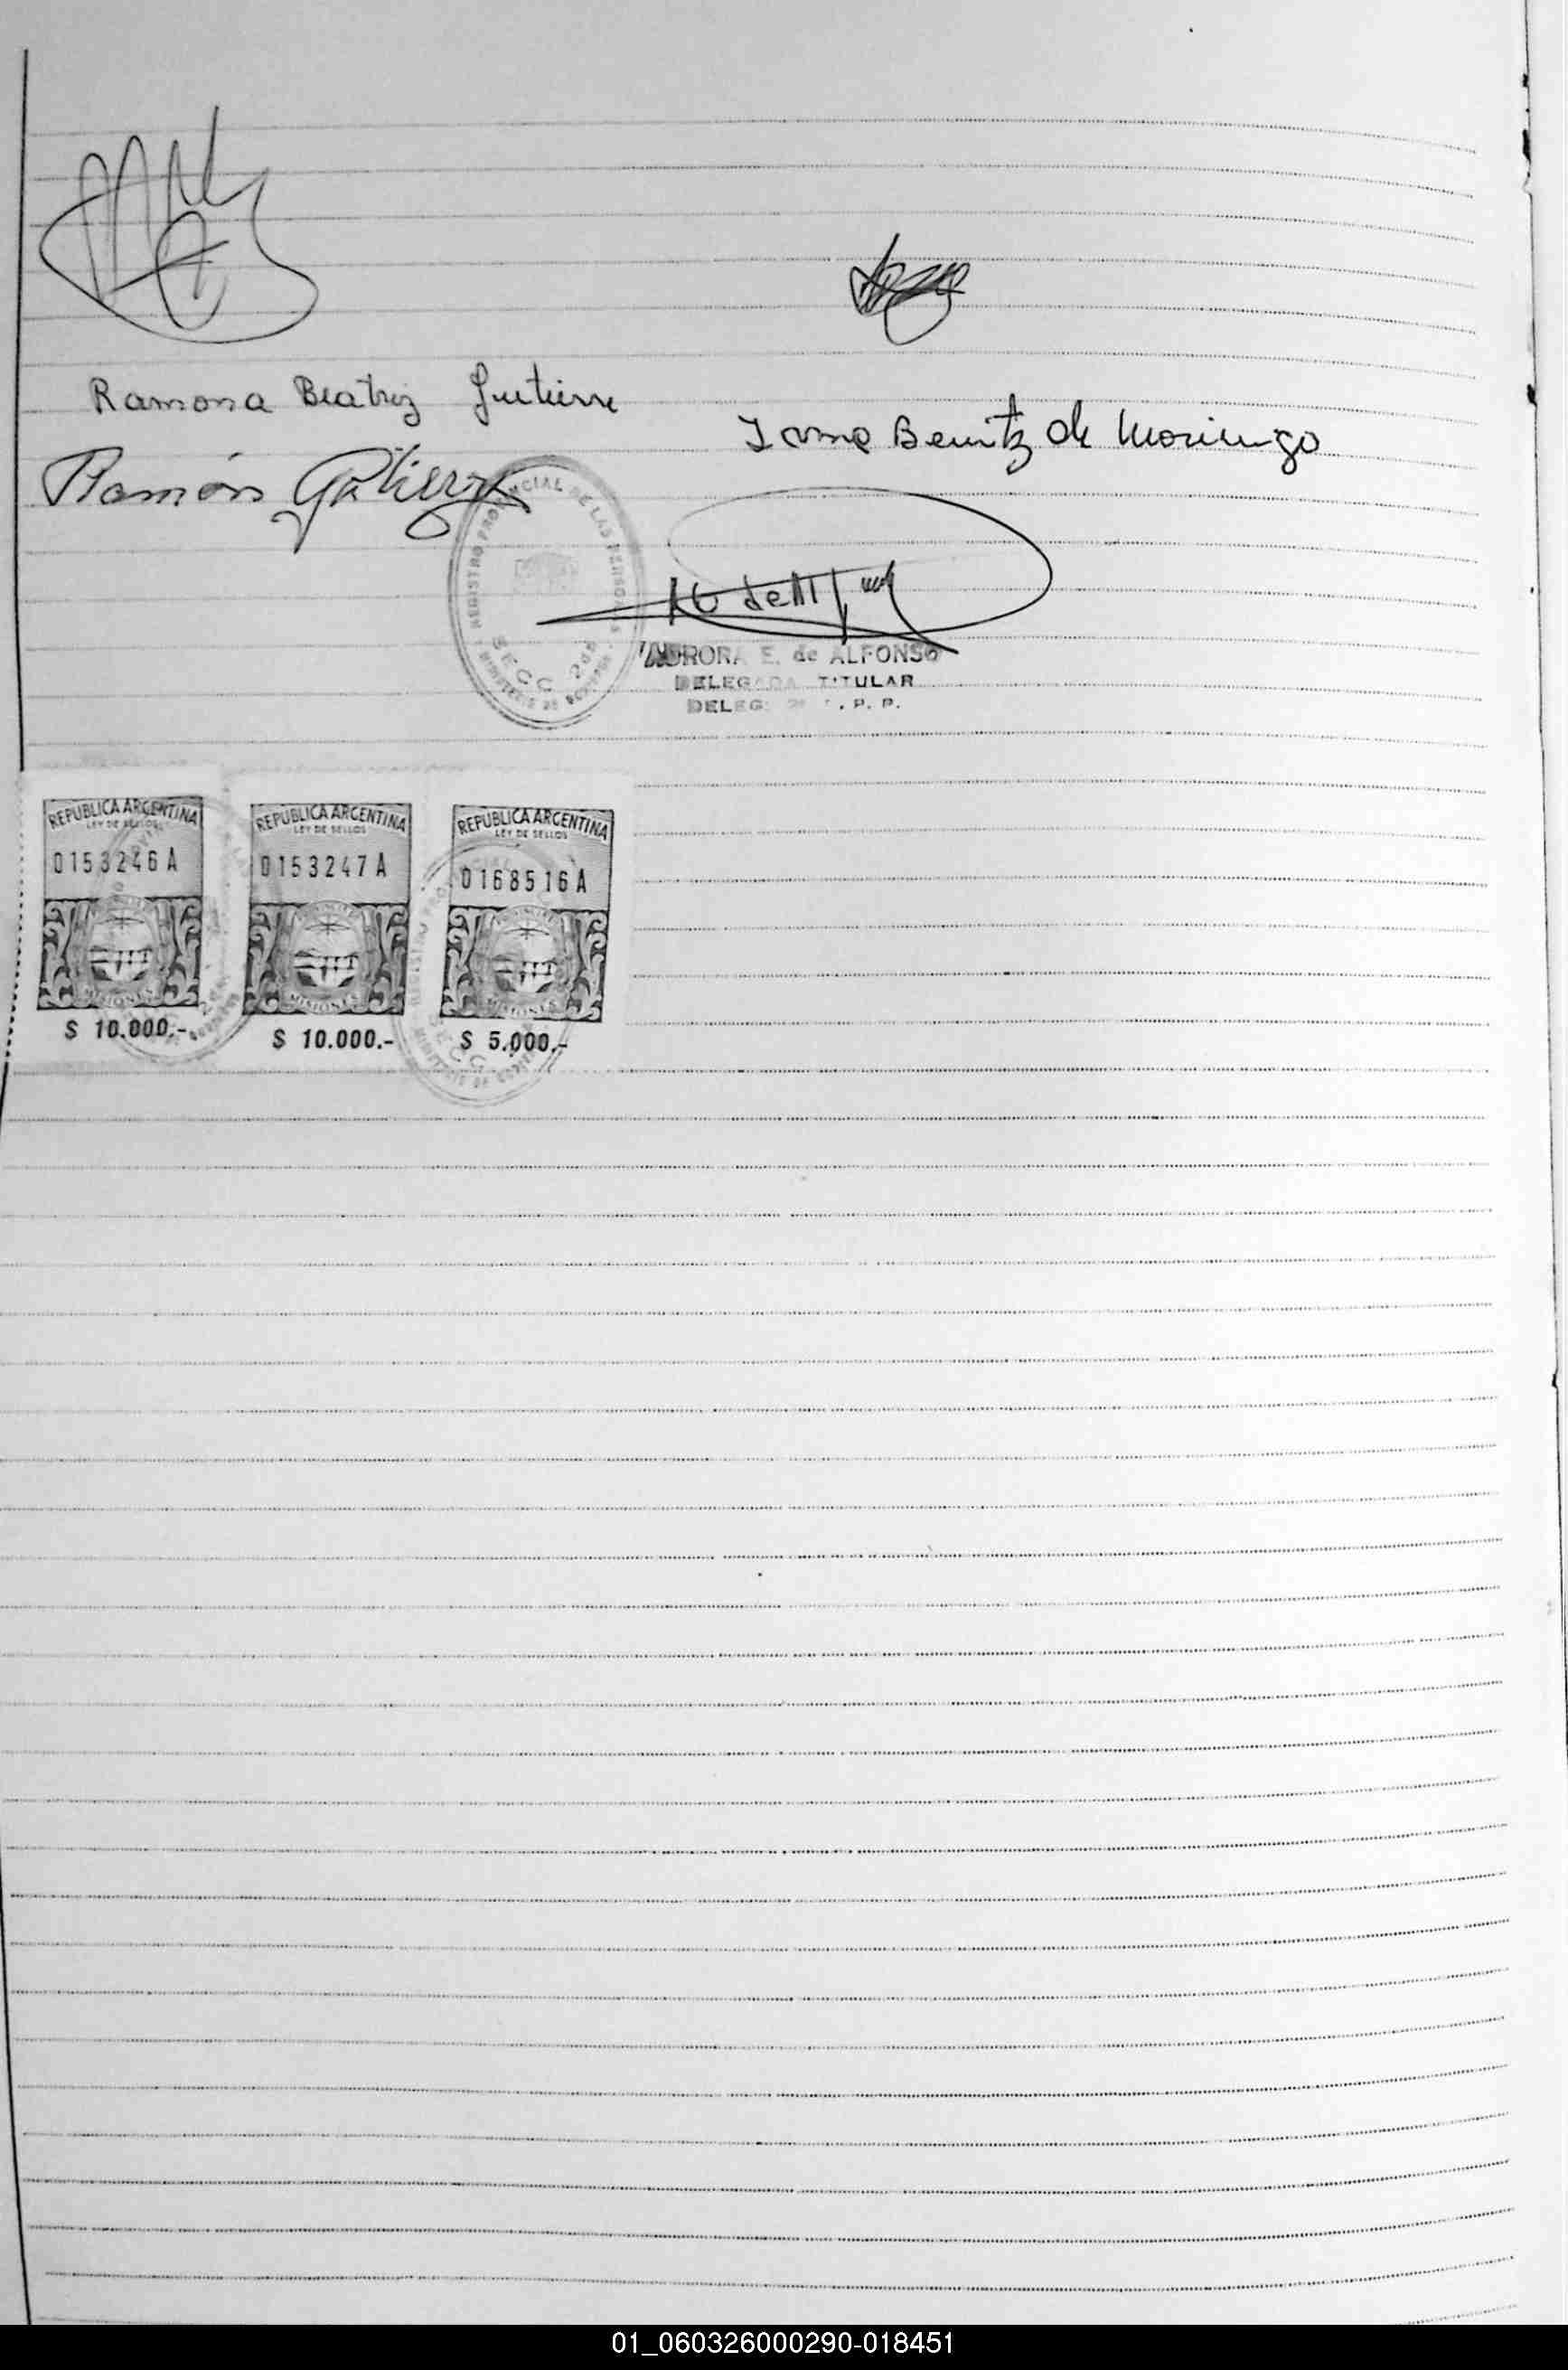 Ramona Beatriz Gutierre
Benitz de
Ramón Gutierrez
REGISTRO PROVINCIAL DE LAS PERSONAS
SECC. 2da
AURORA E. de ALFONSO
DELEGADA TITULAR
REPUBLICA ARGENTINA
LEY DE SELLOS
0153246 A
MISIONES
$ 10.000.-
REPUBLICA ARGENTINA
LEY DE SELLOS
0153247 A
MISIONES
$ 10.000.-
REPUBLICA ARGENTINA
LEY DE SELLOS
0168516 A
MISIONES
$ 5.000.-
01_060326000290-018451